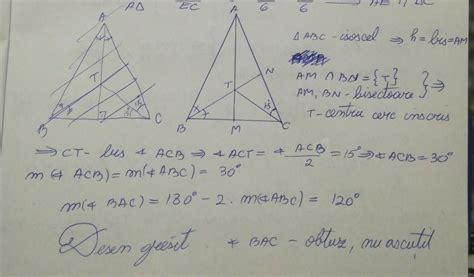 AD EC 6 6 ⇒ AE ∩ DC
A A
Δ ABC - isoscel ⇒ h = bis = AM
N
AM ∩ BN = {T}
AM, BN - bisectoare } ⇒
T T
T - centru cerc inscris
15
B C B M C
⇒ CT - bis ∢ ACB ⇒ ∢ ACT = ∢ ACB/2 = 15° ⇒ ∢ ACB = 30°
m(∢ ACB) = m(∢ ABC) = 30°
m(∢ BAC) = 180° - 2 · m(∢ ABC) = 120°
Desen gresit ∢ BAC - obtuz, nu ascutit